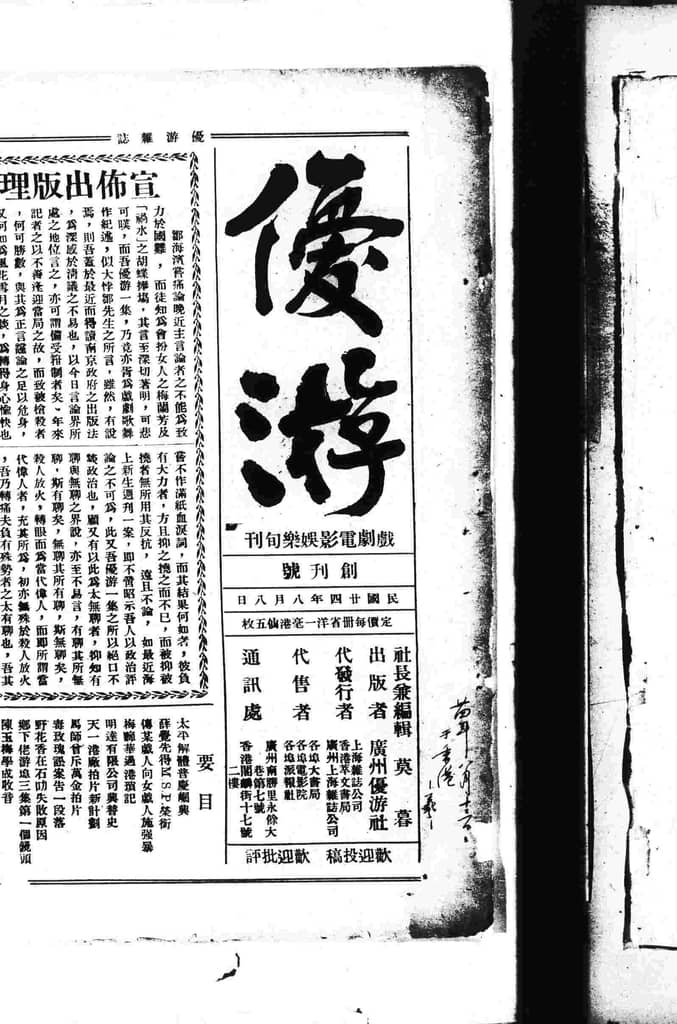 優游雜誌
優游
戲劇電影娛樂旬刊
創刊號
民國廿四年八月八日
定價每冊省洋一毫港仙五枚
社長兼編輯 莫暮
出版者 廣州優游社
代發行者 上海雜誌公司
香港萃文書局
廣州上海雜誌公司
代售者 各埠大書局
各埠電影院
各埠派報社
通訊處 廣州南勝里永餘大
巷第七號
香港閣麟街十七號
二樓
歡迎投稿 歡迎批評
宣佈出版理
鄒海濱嘗痛論晚近主言論者之不能為致
力於國難，而徒知為曾扮女人之梅蘭芳及
「禍水」之胡蝶捧塲，其言至深切著明，可悲
可嘆，而吾優游一集，乃竟亦胥為戲劇歌舞
作紀述，似大悖鄒先生之所言，雖然，有說
焉，則吾蓋於最近而得讀南京政府之出版法
，為深感於清議之不易也，以今日言論界所
處之地位言之，亦可謂備受箝制者矣、年來
記者之以不善逢迎當局之故，而致被槍殺者
，何可勝數，與其為正言讜論之足以危身，
又何如為風花雪月之談，為轉得身心愉快也
嘗不作滿紙血淚詞，而其結果何如者，彼負
有大力者，方且抑之撓之而不已，而被抑被
撓者無所用其反抗，遠且不論，如最近海
上新生週刊一案，即不啻昭示吾人以政治評
論之不可為，此又吾優游一集之所以絕口不
談政治也，顧又有以此為太無聊者，抑知有
聊與無聊之界說，亦至不易言，有聊其所無
聊，斯有聊矣，無聊其所有聊，斯無聊矣，
殺人放火，轉眼而為當代偉人，而即所謂當
代偉人者，充其所為，初亦無殊於殺人放火
，吾乃轉痛夫負有殊勢者之太有聊也，吾其
要目
太平解體普慶崛興
薛覺先得MSP榮銜
傳某戲人向女戲人施強暴
梅畹華過港瑣記
明達有限公司興替史
天一港廠拍片新計劃
馬師曾斥萬金拍片
毒玫瑰訟案告一段落
野花香在石叻失敗原因
鄉下佬游埠三集第一個鏡頭
陳玉梅學成收音